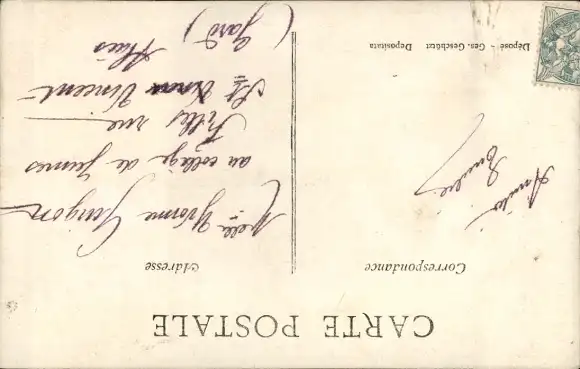 CARTE POSTALE
Correspondance
Adresse
Amitiés
Emilie
Melle Yvonne Guigon
au collège de Jeunes
Filles rue
St Vincent
Alais
(Gard)
Déposé - Ges. Geschützt Depositata